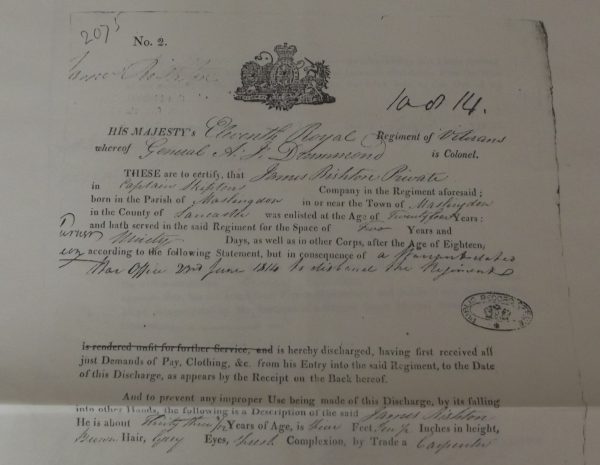 2075
No. 2.
James Rishton
10 & 14.
HIS MAJESTY's Eleventh Royal Regiment of Veterans
whereof General A. J. Drummond is Colonel.
THESE are to certify, that James Rishton Private
in Captain Company in the Regiment aforesaid;
born in the Parish of in or near the Town of
in the County of Lancaster was enlisted at the Age of Twenty four Years:
and hath served in the said Regiment for the Space of Years and
Ninety Days, as well as in other Corps, after the Age of Eighteen,
according to the following Statement, but in consequence of a Warrant dated
War Office 23rd June 1814 to disband the Regiment
PUBLIC RECORD OFFICE
is rendered unfit for further Service, and is hereby discharged, having first received all
just Demands of Pay, Clothing, &c. from his Entry into the said Regiment, to the Date
of this Discharge, as appears by the Receipt on the Back hereof.
And to prevent any improper Use being made of this Discharge, by its falling
into other Hands, the following is a Description of the said James Rishton
He is about Thirty three Years of Age, is Feet, Inches in height,
Brown Hair, Grey Eyes, fresh Complexion, by Trade a Carpenter